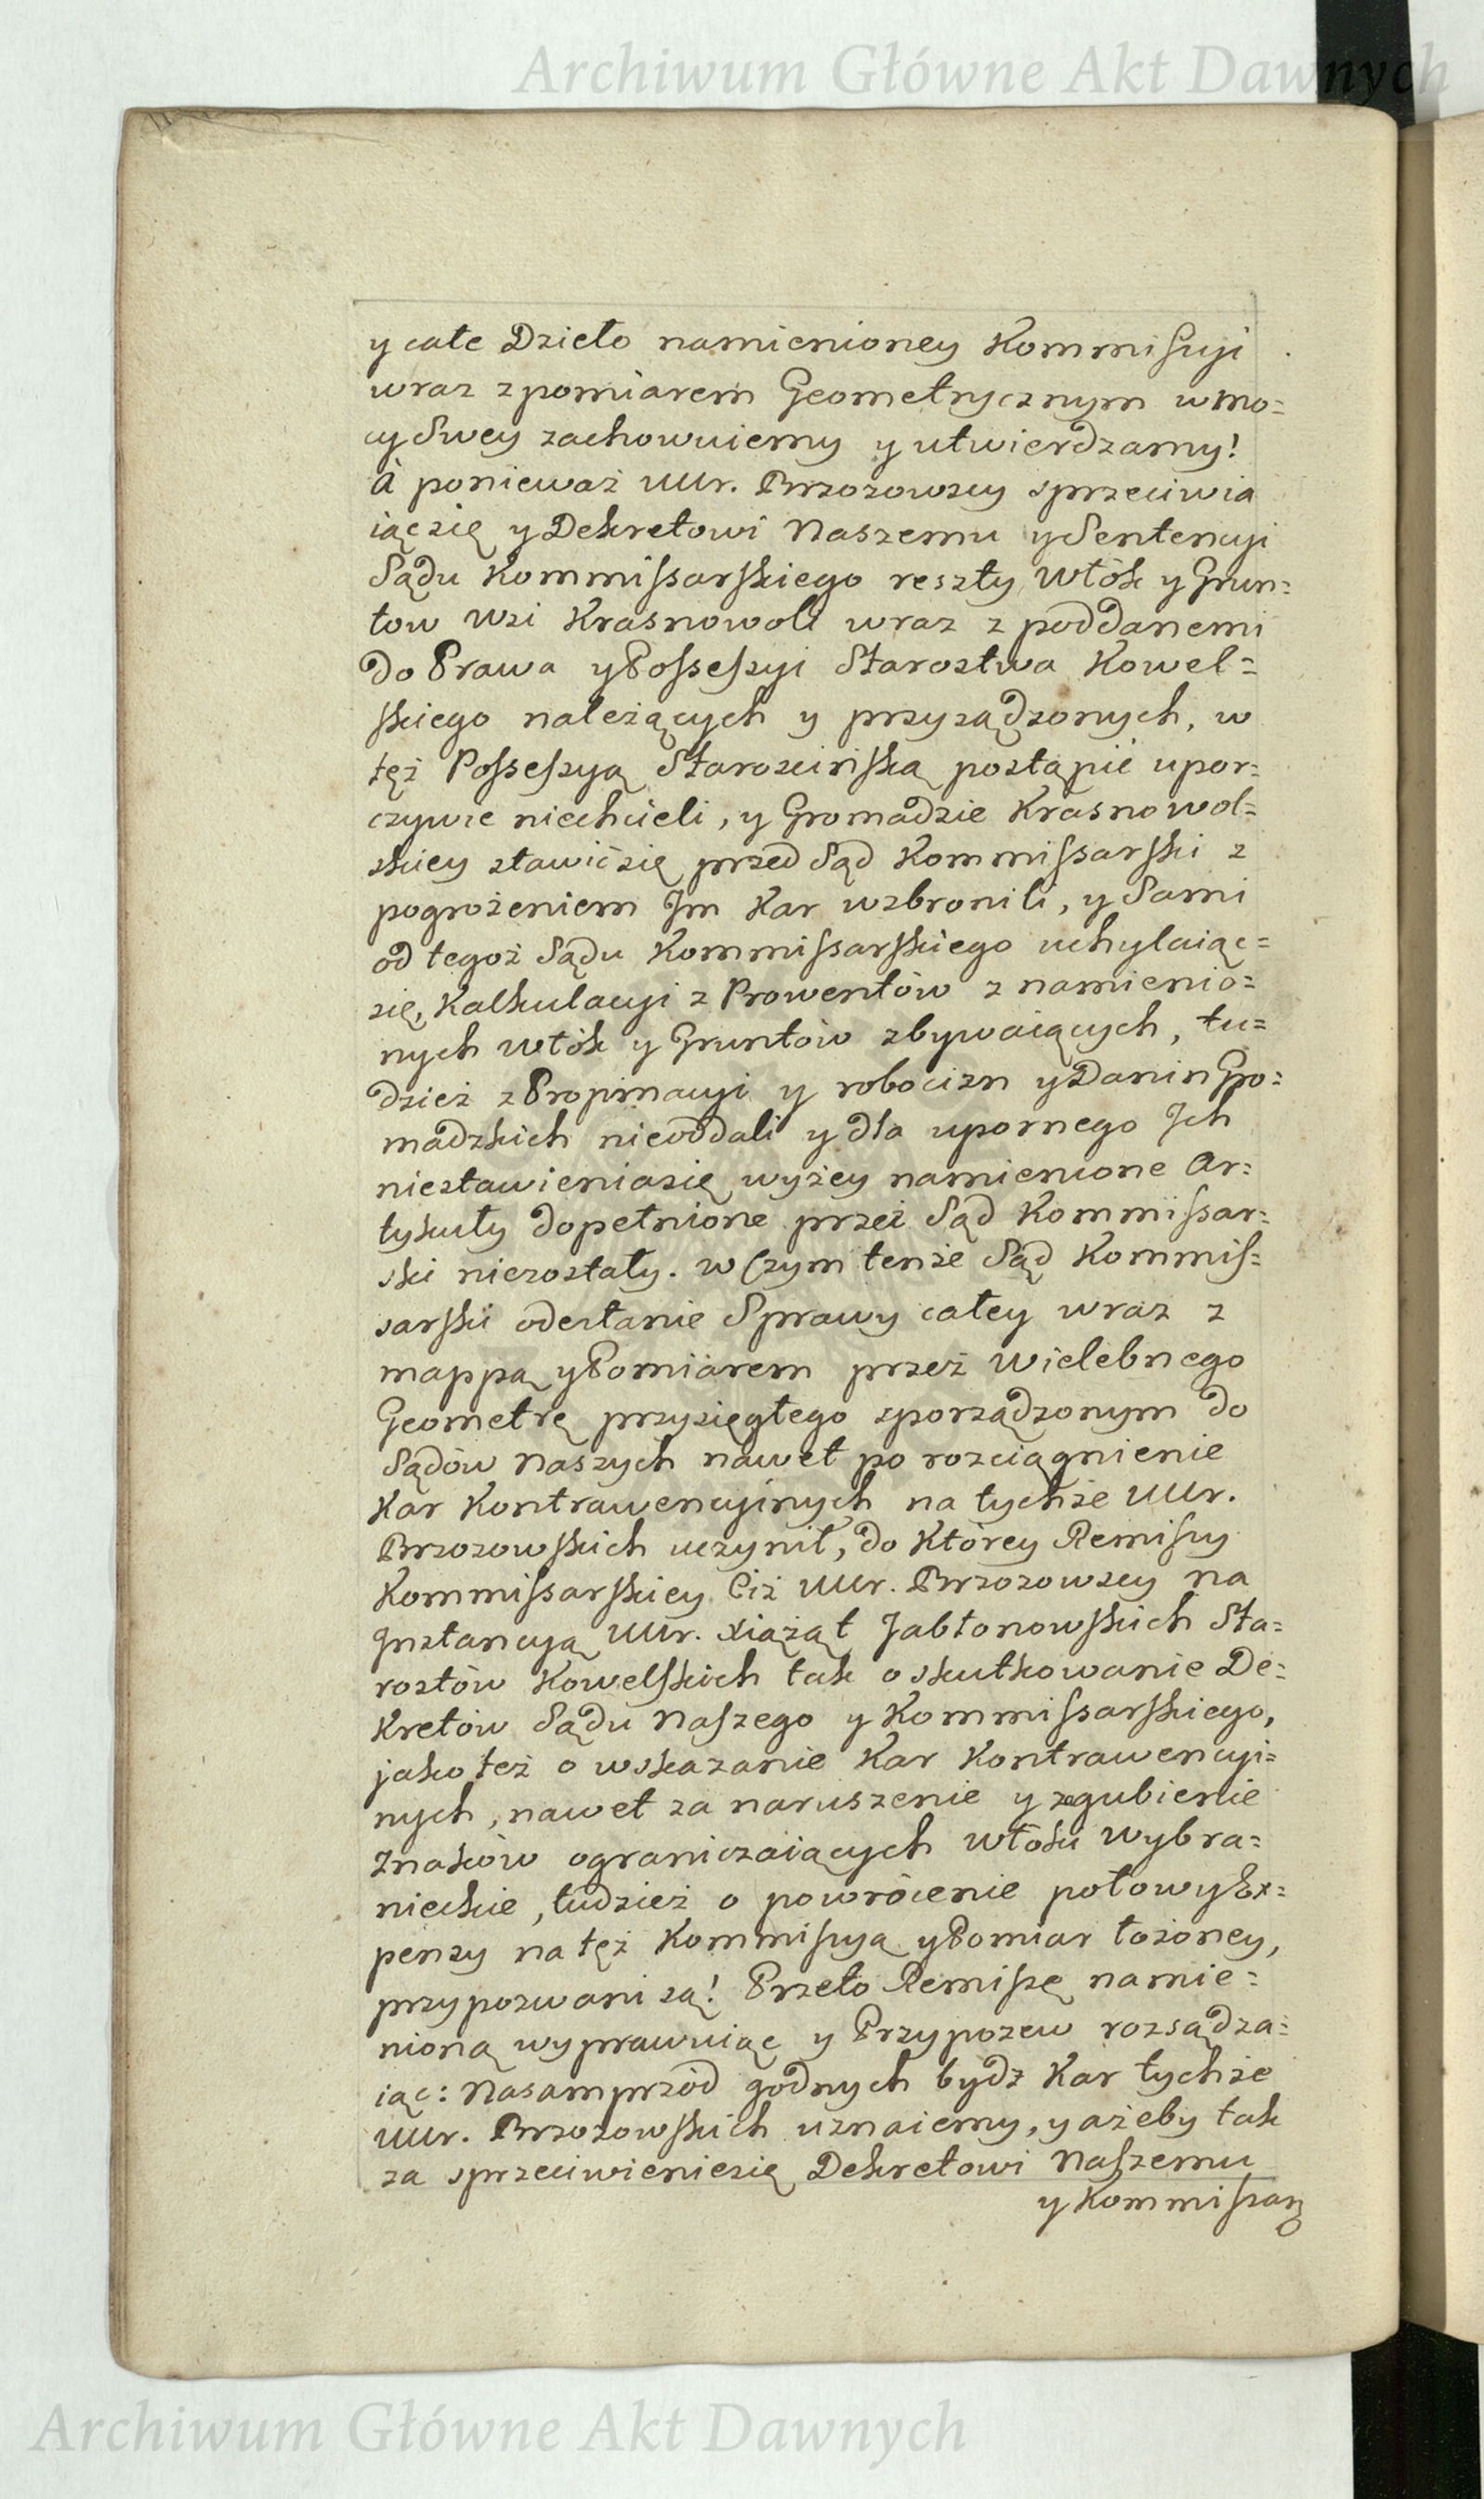 Archiwum Główne Akt Dawnych
y całe Dzieło namienioney Kommissyi
wraz z pomiarem Geometrycznym w mo=
cy Swey zachowuiemy y utwierdzamy!
à ponieważ UUr. Brzozowscy sprzeciwia
iąc się y Dekretowi Naszemu y Sentencyi
Sądu Kommissarskiego reszty Włók y Grun=
tow Wsi Krasnowoli wraz z poddanemi
do Prawa y Possessyi Starostwa Kowel=
skiego należących y przysądzonych, w
też Possessyą Starościńską postąpić upor=
czywie niechcieli, y Gromadzie Krasnowol=
skiey stawić się przed Sąd Kommissarski z
pogrożeniem Im Kar wzbronili, y Sami
od tegoż Sądu Kommissarskiego uchylaiąc=
się, Kalkulacyi z Prowentów z namienio=
nych włók y Gruntów zbywaiących, tu=
dzież z Propinacyi y robocizn y Danin Gro=
madzkich nieoddali y dla upornego Ich
niestawienia się wyżey namienione Ar=
tykuły dopełnione przez Sąd Kommissar=
ski niezostały. w Czym tenże Sąd Kommis=
sarski odesłanie Sprawy całey wraz z
mappą y Pomiarem przez Wielebnego
Geometrę przysięgłego sporządzonym do
Sądów Naszych nawet po rozciągnienie
Kar Kontrawencyinych na tychże UUr.
Brzozowskich uczynił, do Którey Remissy
Kommissarskiey Ciż UUr. Brzozowscy na
Instancyą UUr. Xiążąt Jabłonowskich Sta=
rostów Kowelskich tak o skutkowanie De=
Kretów Sądu Naszego y Kommissarskiego,
jako też o wskazanie Kar Kontrawencyi=
nych, nawet za naruszenie y zagubienie
Znaków ograniczaiących Włóki Wybra=
nieckie, tudzież o powrócenie połowy Ex=
pensy na też Kommissyą y Pomiar łożoney,
przypozwani są! Przeto Remissę namie=
nioną wyprawuiąc y Przypozew rozsądza=
iąc: Nasamprzód godnych bydź Kar tychże
UUr. Brzozowskich uznaiemy, y ażeby tak
za sprzeciwienie się Dekretowi Naszemu
y Kommissarz
Archiwum Główne Akt Dawnych